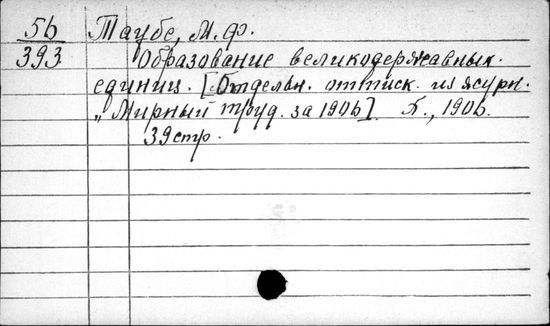 56 Таубе, М. Ф.
393 Образование великодержавных.
единиц. [Отдельн. оттиск. из журн.
„Мирный труд. за 1906]. Х., 1906.
39 стр.